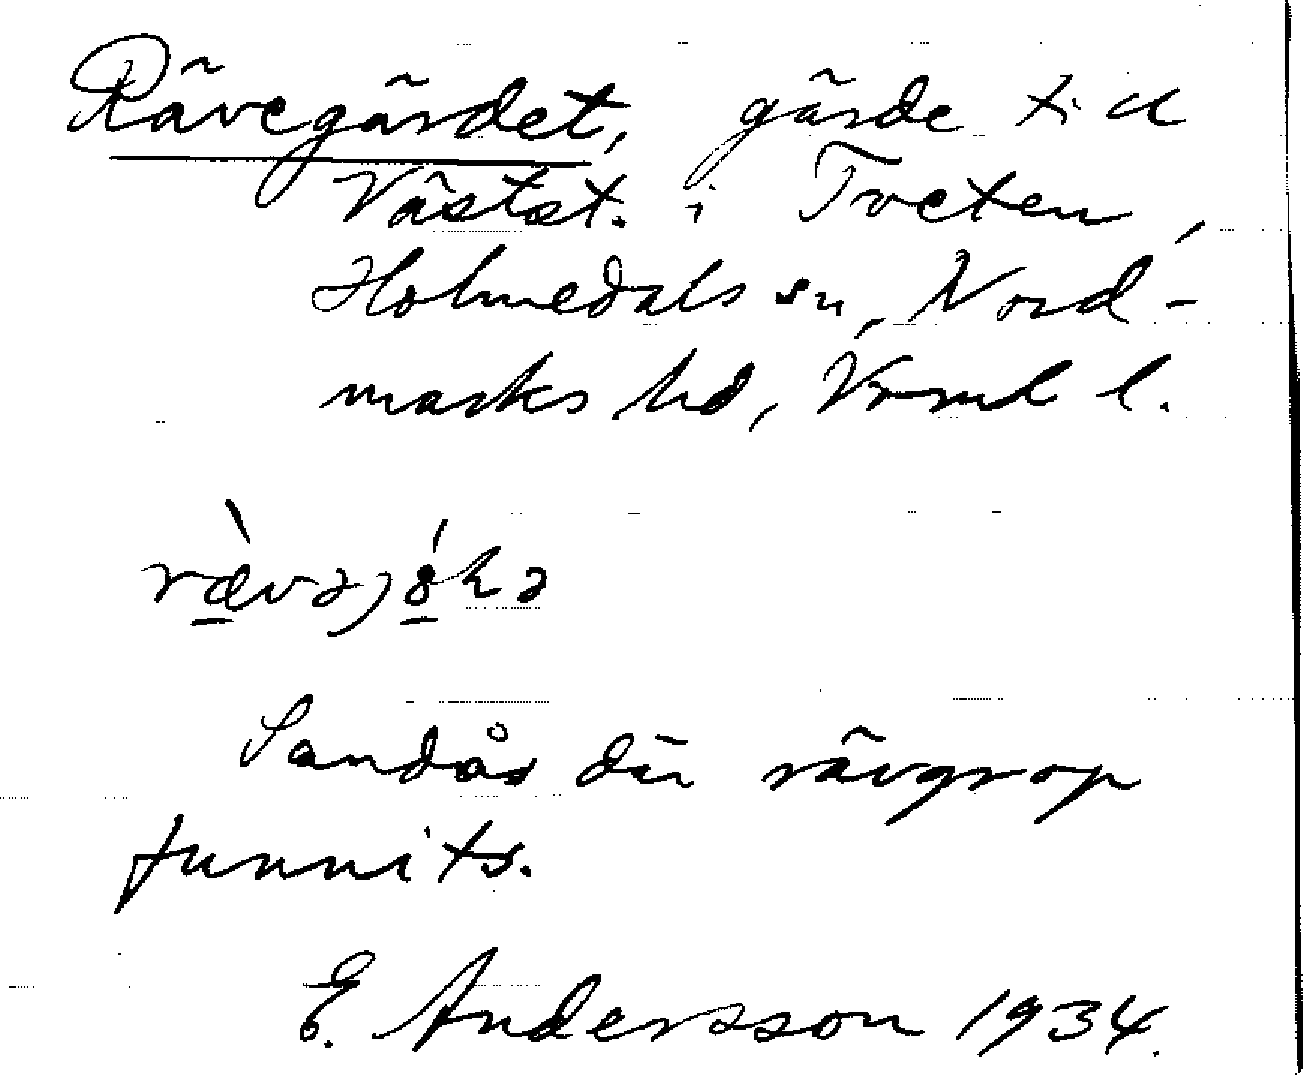 Rävegärdet, gärde till
Västst. i Tveten,
Holmedals sn, Nord-
marks hd, Vrml l.
Sandås där rävgrop
funnits.
E. Andersson 1934.